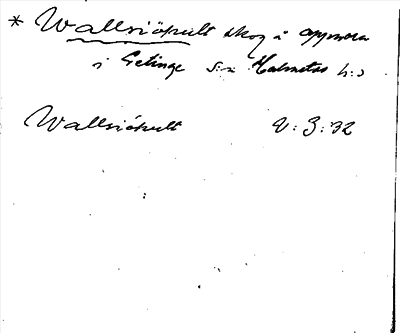 * Wallsiökult skog i
i Getinge s:n Halmstads h:d
Wallsiökult V: 3: 32